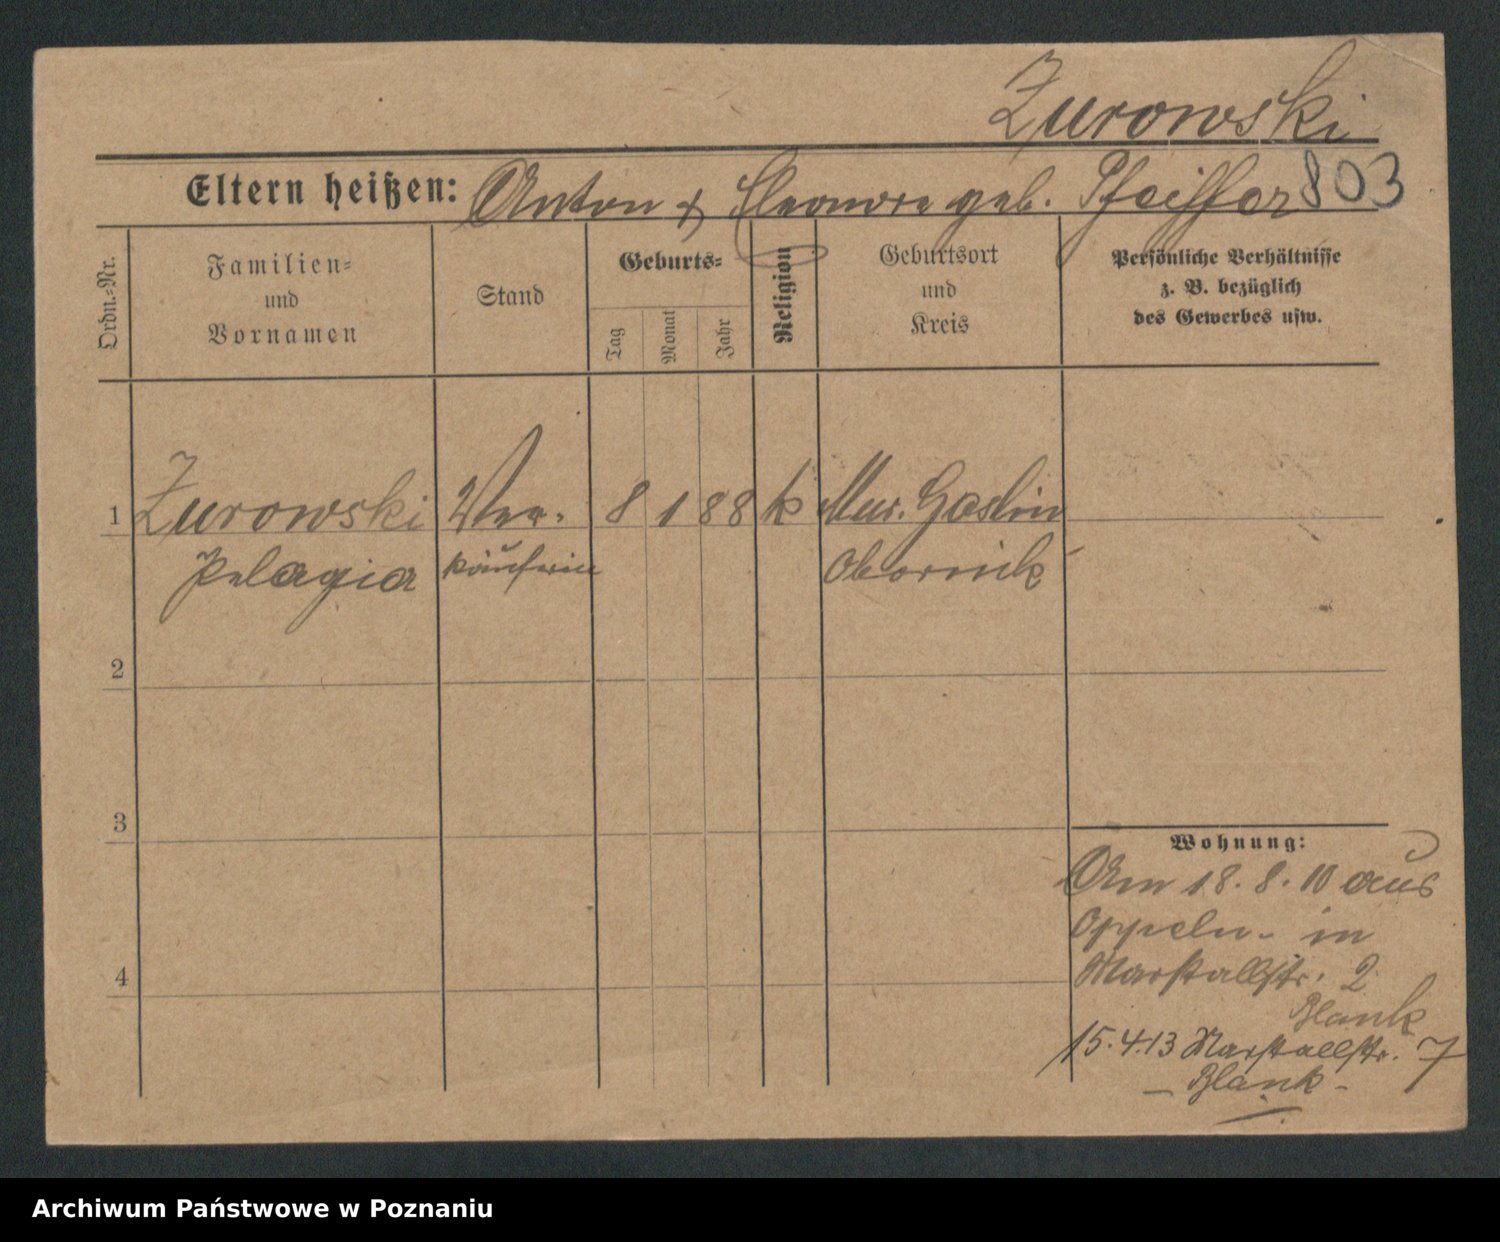 Zurowski
Eltern heißen: Anton & Eleonore geb. Pfeiffer 803
Ordn.-Nr.
Familien-
und
Vornamen
Stand
Geburts-
Tag
Monat
Jahr
Religion
Geburtsort
und
Kreis
Persönliche Verhältnisse
z. B. bezüglich
des Gewerbes usw.
1 Zurowski Ver- 8 1 88 k Mur. Goslin
Pelagia käuferin Obornick
2
3
Wohnung:
Am 18.8.10 aus
Oppeln - in
4 Marstallstr. 2
Blank
15.4.13 Marstallstr. 7
- Blank -
Archiwum Państwowe w Poznaniu